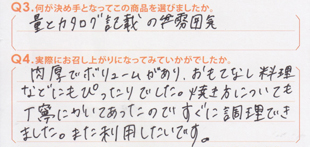 Q3.何が決め手となってこの商品を選びましたか。
量とカタログ記載の雰囲気
Q4.実際にお召し上がりになってみていかがでしたか。
肉厚でボリュームがあり、おもてなし料理
などにもぴったりでした。焼き方についても
丁寧にかいてあったのですぐに調理でき
ました。また利用したいです。